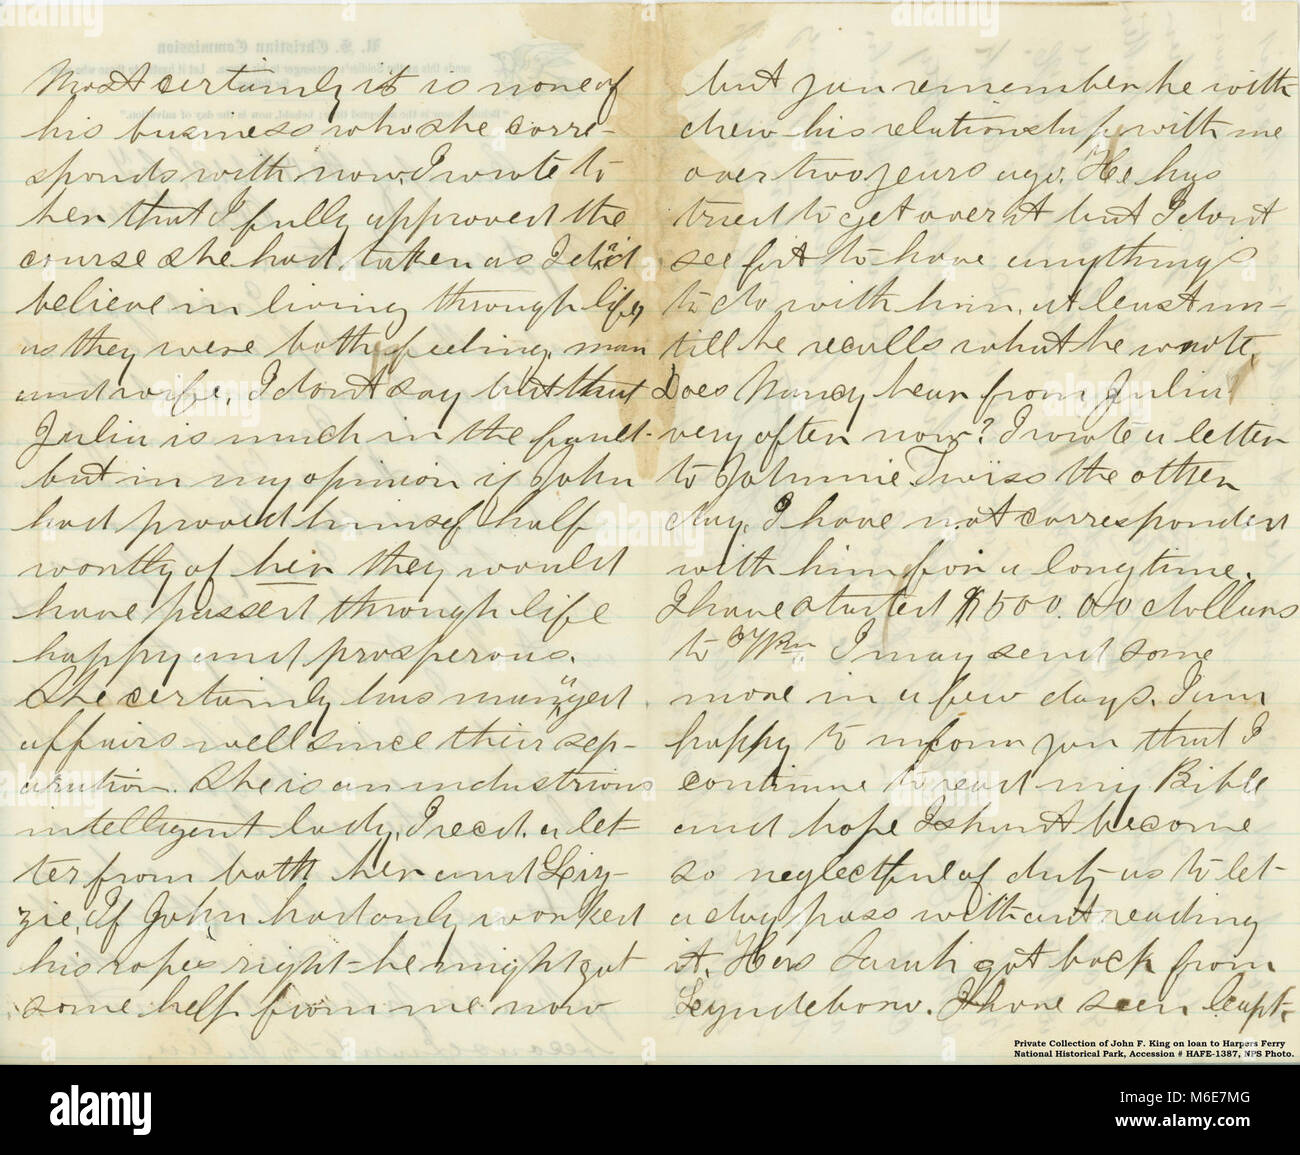 Most certainly it is none of
his business who she corre-
sponds with now. I wrote to
her that I fully approved the
course she had taken as I did
believe in living through life,
as they were both feeling, man
and wife. I dont say but that
Julia is much in the fault-
but in my opinion if John
had proved himself half
worthy of her they would
have passed through life
happy and prosperous.
She certainly has managed
affairs well since their sep-
aration. She is an industrious
intelligent lady. I recd. a let-
ter from both her and Liz-
zie. If John had only worked
his ropes right- he might got
some help from me now
but you remember he with-
drew his relationship with me
over two years ago. He has
tried to get over it but I dont
see fit to have anythings
to do with him, at least un-
till he recalls what he wrote.
Does Nancy hear from Julia
very often now? I wrote a letter
to Johnnie Twiss the other
day. I have not corresponded
with him for a long time.
I have started $500.00 dollars
to I may send some
more in a few days. I am
happy to inform you that I
continue to read my Bible
and hope I shant become
so neglectful of duty as to let-
a day pass without reading
it. Has Sarah got back from
Lyndeboro. I have seen Capt-
U. S. Christian Commission
Private Collection of John F. King on loan to Harpers Ferry
National Historical Park, Accession # HAFE-1387, NPS Photo.
alamy
alamy
www.alamy.com
M6E7MG